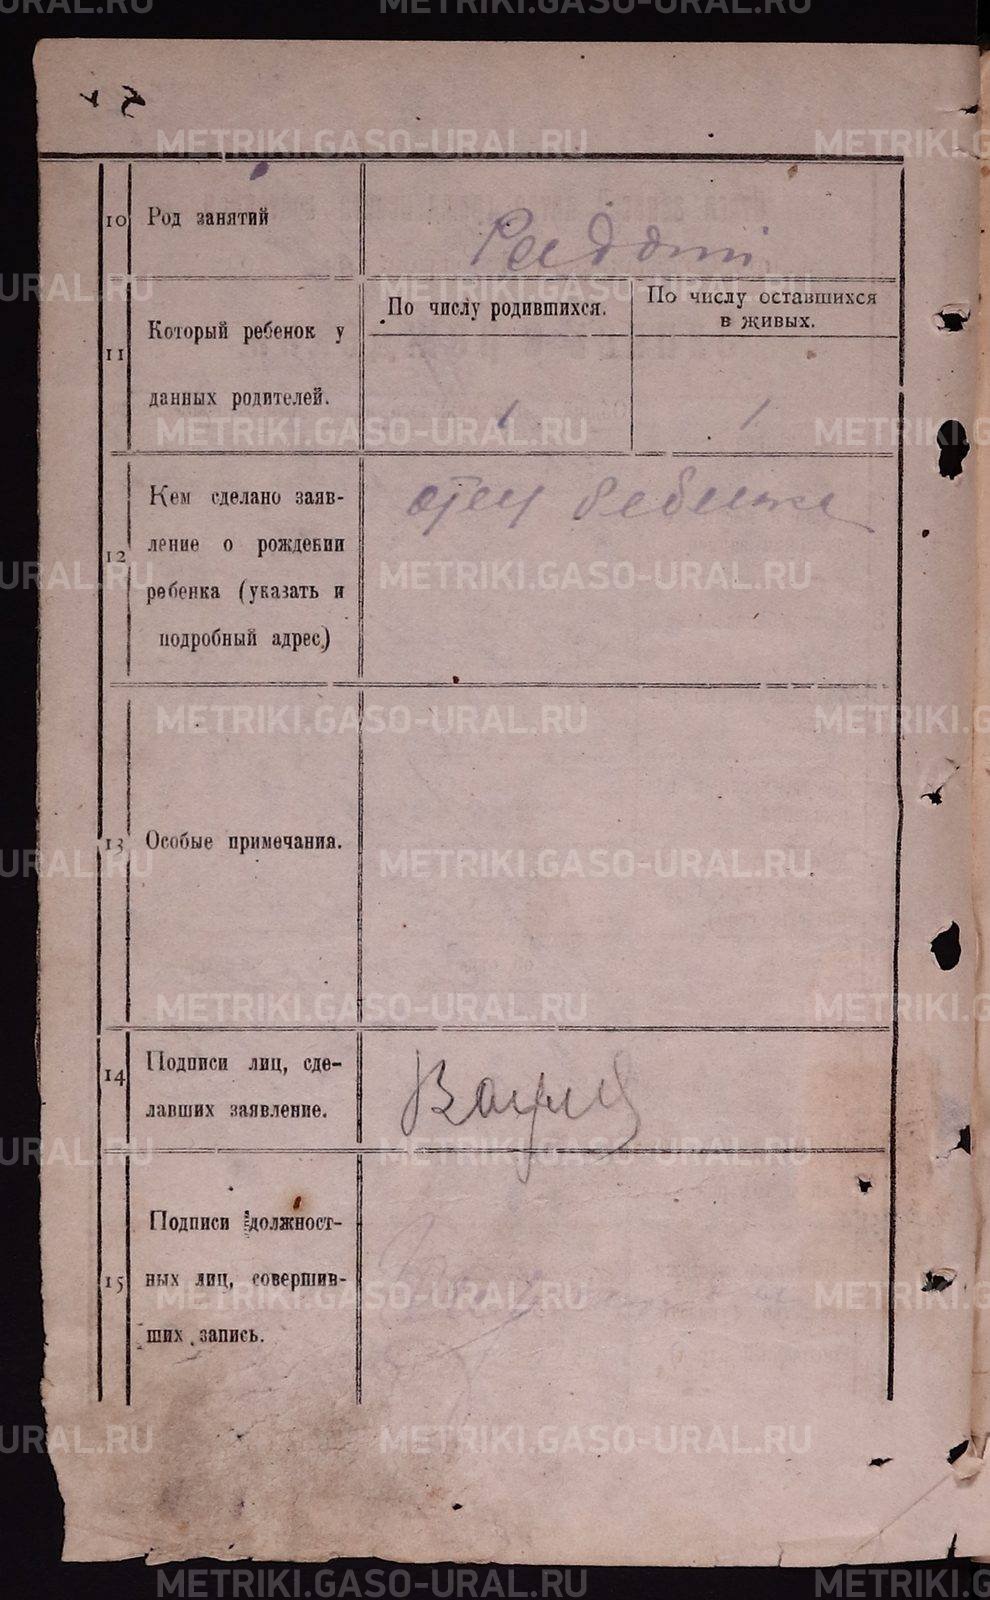 METRIKI.GASO-URAL.RU
10 Род занятий
11 Который ребенок у
данных родителей.
По числу родившихся.
По числу оставшихся
в живых.
1 1
12 Кем сделано заяв-
ление о рождении
ребенка (указать и
подробный адрес)
отец ребенка
13 Особые примечания.
14 Подписи лиц, сде-
лавших заявление.
15 Подписи должност-
ных лиц, совершив-
ших запись.